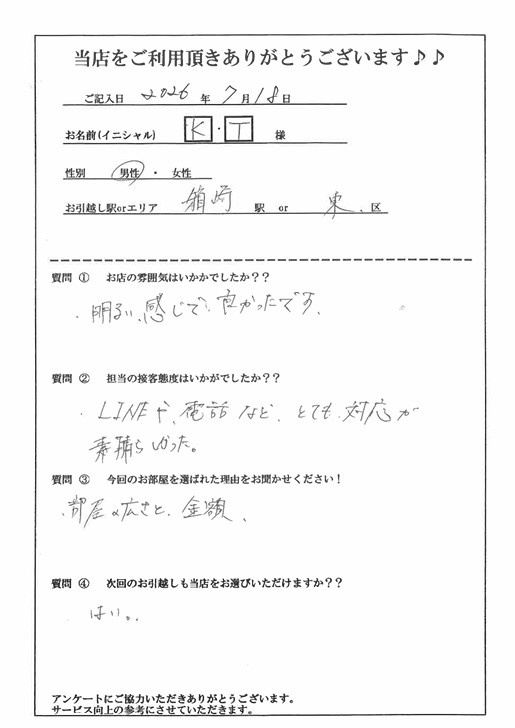 当店をご利用頂きありがとうございます♪♪
ご記入日 2026 年 7 月 18 日
お名前(イニシャル) K・T 様
性別 男性 ・ 女性
お引越し駅orエリア 箱崎 駅 or 東 区
質問 ① お店の雰囲気はいかかでしたか??
・明るい感じで良かったです。
質問 ② 担当の接客態度はいかがでしたか??
・LINEや、電話など、とても対応が
素晴らしかった。
質問 ③ 今回のお部屋を選ばれた理由をお聞かせください!
・部屋の広さと、金額、
質問 ④ 次回のお引越しも当店をお選びいただけますか??
はい。
アンケートにご協力いただきありがとうございます。
サービス向上の参考にさせていただきます。